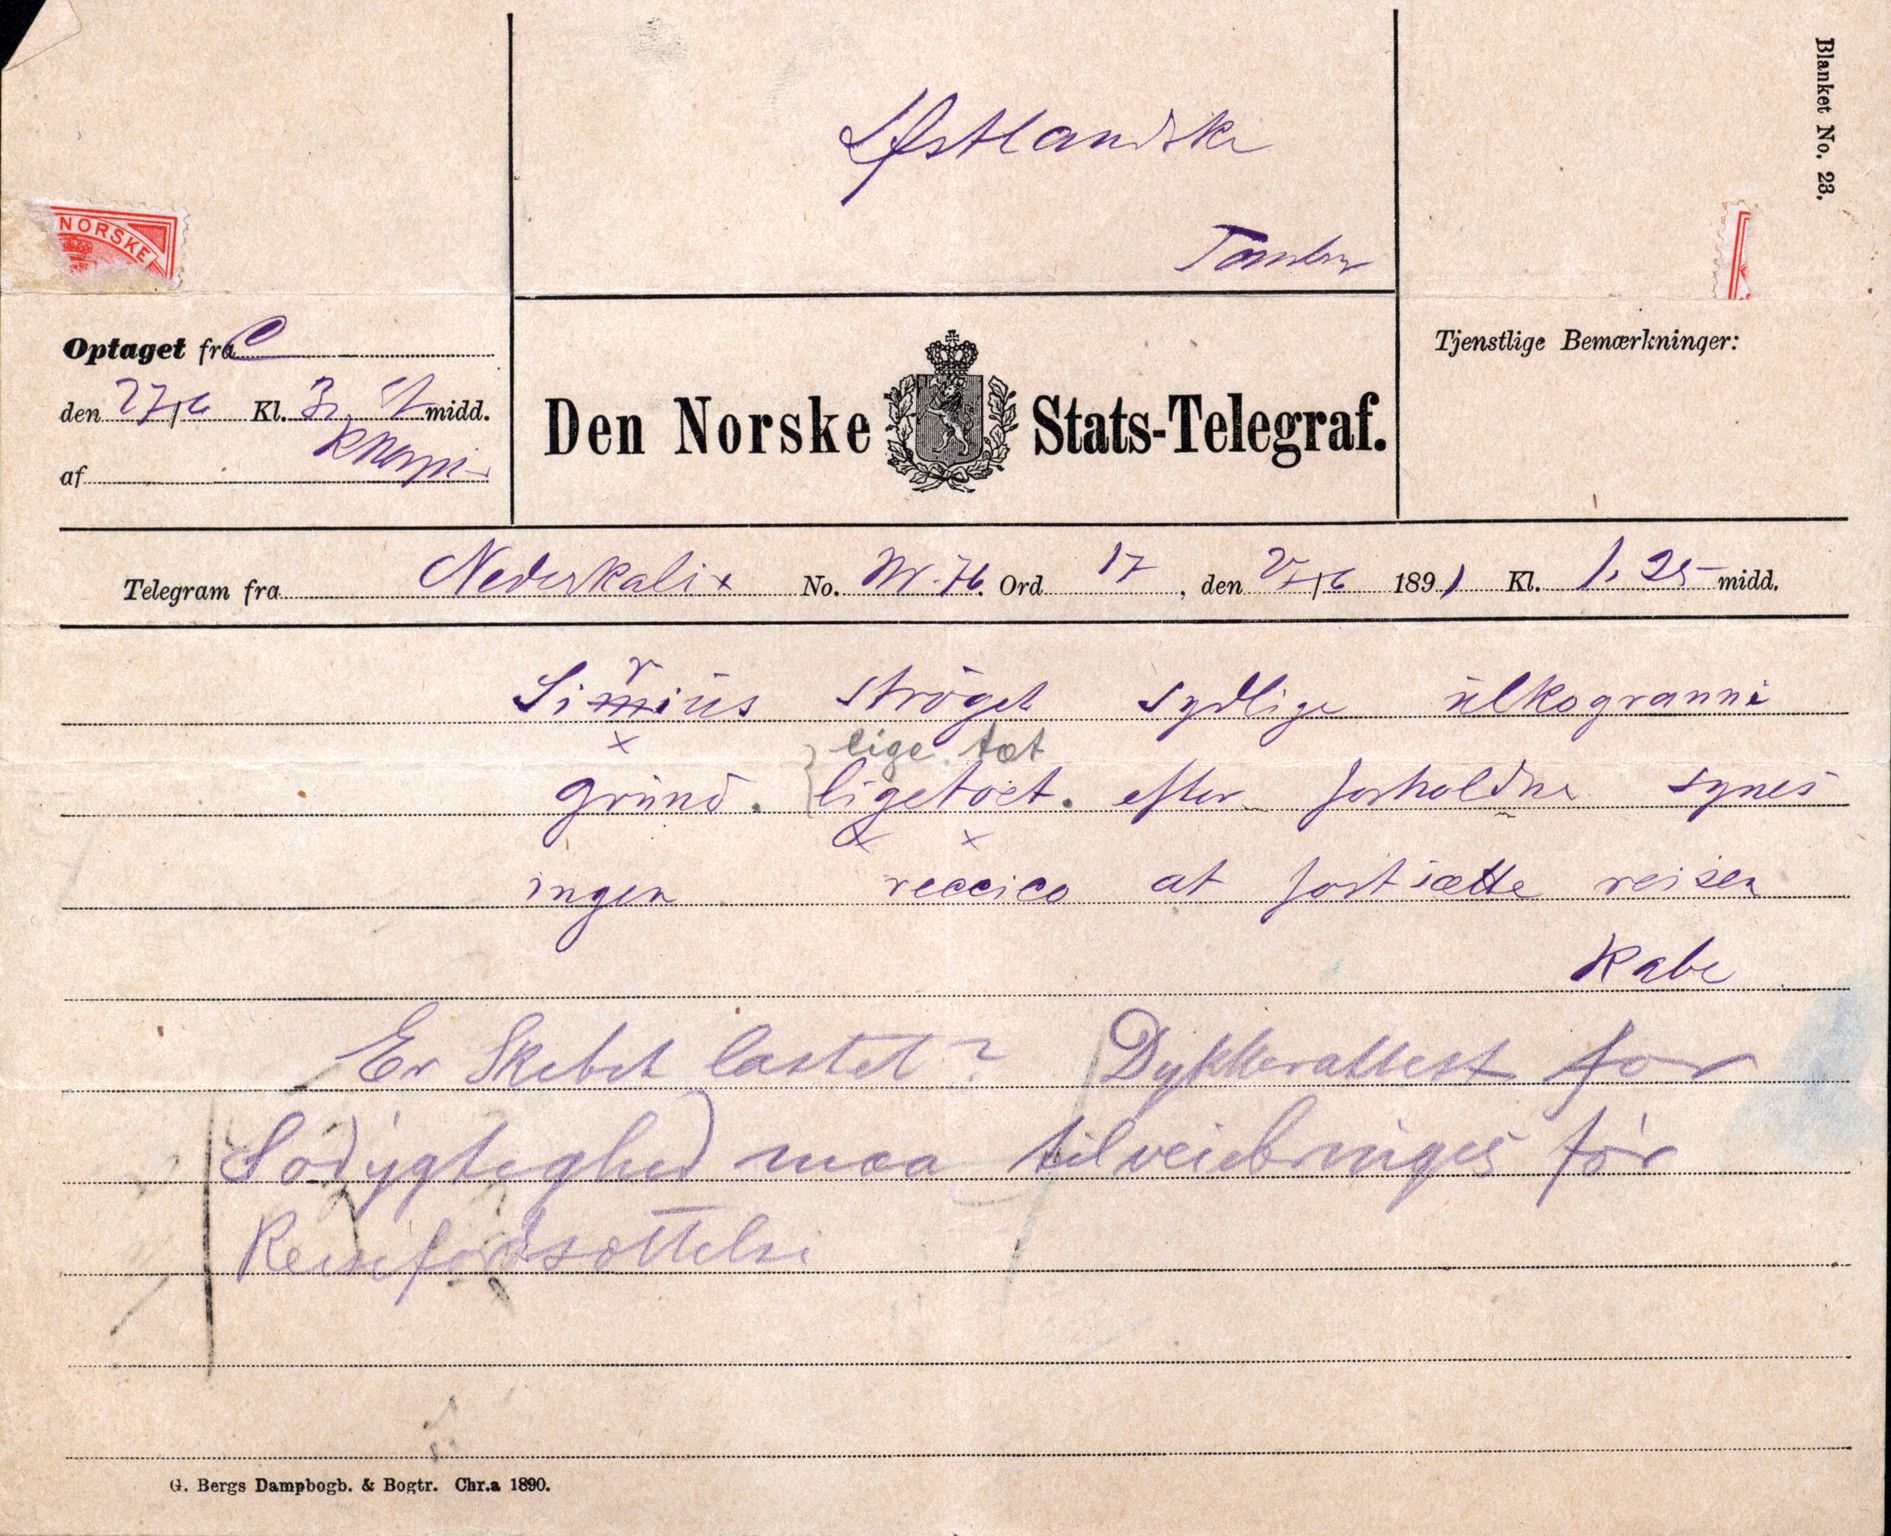 Blanket No. 23.
Østlandske
NORSKE
Optaget fra C
den 27/6 Kl. 3, midd.
af
Den Norske Stats-Telegraf.
Tjenstlige Bemærkninger:
Telegram fra Nederkalix No. W. 76. Ord 17, den 27/6 1891 Kl. 1,25 midd.
r
Simius ströget sydlige ulkogranni
lige tæt
grund. ligetoet. efter forholdne synes
ingen reccico at fortsætte reisen
Kabe
Er Skibet lastet? Dykkerattest for
Sødygteghed maa tilveiebringes før
Reisefordsættelse
G. Bergs Dampbogb. & Bogtr. Chr.a 1890.